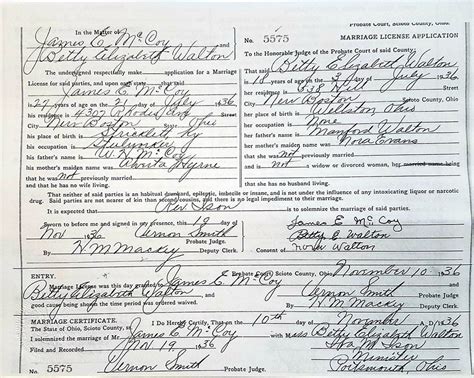 In the Matter of
James E. McCoy
and
Betty Elizabeth Walton
The undersigned respectfully make application for a Marriage
License for said parties, and upon oath state:
that said
James E. McCoy
is 27 years of age on the 21 day of July 1936
his residence is 4307 Rhodes Ave Street
City New Boston Ohio
his place of birth is
his occupation is
his father's name is W. H. McCoy
his mother's maiden name was
that he was not previously married
and that he has no wife living.
That neither of said parties is an habitual drunkard, epileptic, imbecile or insane, and is not under the influence of any intoxicating liquor or narcotic
drug. Said parties are not nearer of kin than second cousins, and there is no legal impediment to their marriage.
It is expected that Rev Ison
Sworn to before me and signed in my presence, this 10 day of
Nov 1936 Vernon Smith
Probate Judge.
By H M Mackey Deputy Clerk.
Probate Court, Scioto County, Ohio.
No. 5575 MARRIAGE LICENSE APPLICATION
To the Honorable Judge of the Probate Court of said County:
That said Betty Elizabeth Walton
is 18 years of age on the 3 day of July 1936
her residence is 638 Hill Street
City New Boston Scioto County, Ohio
her place of birth is Ohio
her occupation is None
her father's name is Manford Walton
her mother's maiden name was Nora Evans
that she was not previously married
and is not a widow or divorced woman,
and that she has no husband living.
James E McCoy
Betty E Walton
Nora Walton
ENTRY. Probate Court, Scioto County, Ohio, November 10 1936
Marriage License was this day granted to James E. McCoy and
Betty Elizabeth Walton
good cause being shown the time required was waived.
Vernon Smith
Probate Judge.
By H M Mackey Deputy Clerk.
MARRIAGE CERTIFICATE. I Do Hereby Certify, That on the 10th day of November A. D. 1936
The State of Ohio, Scioto County, ss.
Mr James E. McCoy with Miss Betty Elizabeth Walton
Filed and Recorded Nov 19 1936
Ira M. Ison
Minister
No. 5575 Vernon Smith Probate Judge.
Portsmouth, Ohio